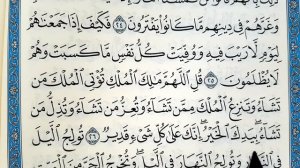 وَغَرَّهُمْ فِى دِينِهِم مَّا كَانُوا۟ يَفْتَرُونَ ٢٤ فَكَيْفَ إِذَا جَمَعْنَٰهُمْ
لِيَوْمٍ لَّا رَيْبَ فِيهِ وَوُفِّيَتْ كُلُّ نَفْسٍ مَّا كَسَبَتْ وَهُمْ
لَا يُظْلَمُونَ ٢٥ قُلِ ٱللَّهُمَّ مَٰلِكَ ٱلْمُلْكِ تُؤْتِى ٱلْمُلْكَ مَن
تَشَآءُ وَتَنزِعُ ٱلْمُلْكَ مِمَّن تَشَآءُ وَتُعِزُّ مَن تَشَآءُ وَتُذِلُّ مَن
تَشَآءُ بِيَدِكَ ٱلْخَيْرُ إِنَّكَ عَلَىٰ كُلِّ شَىْءٍ قَدِيرٌ ٢٦ تُولِجُ ٱلَّيْلَ
وَتُولِجُ ٱلنَّهَارَ فِى ٱلَّيْلِ وَتُخْرِجُ ٱلْحَىَّ مِنَ